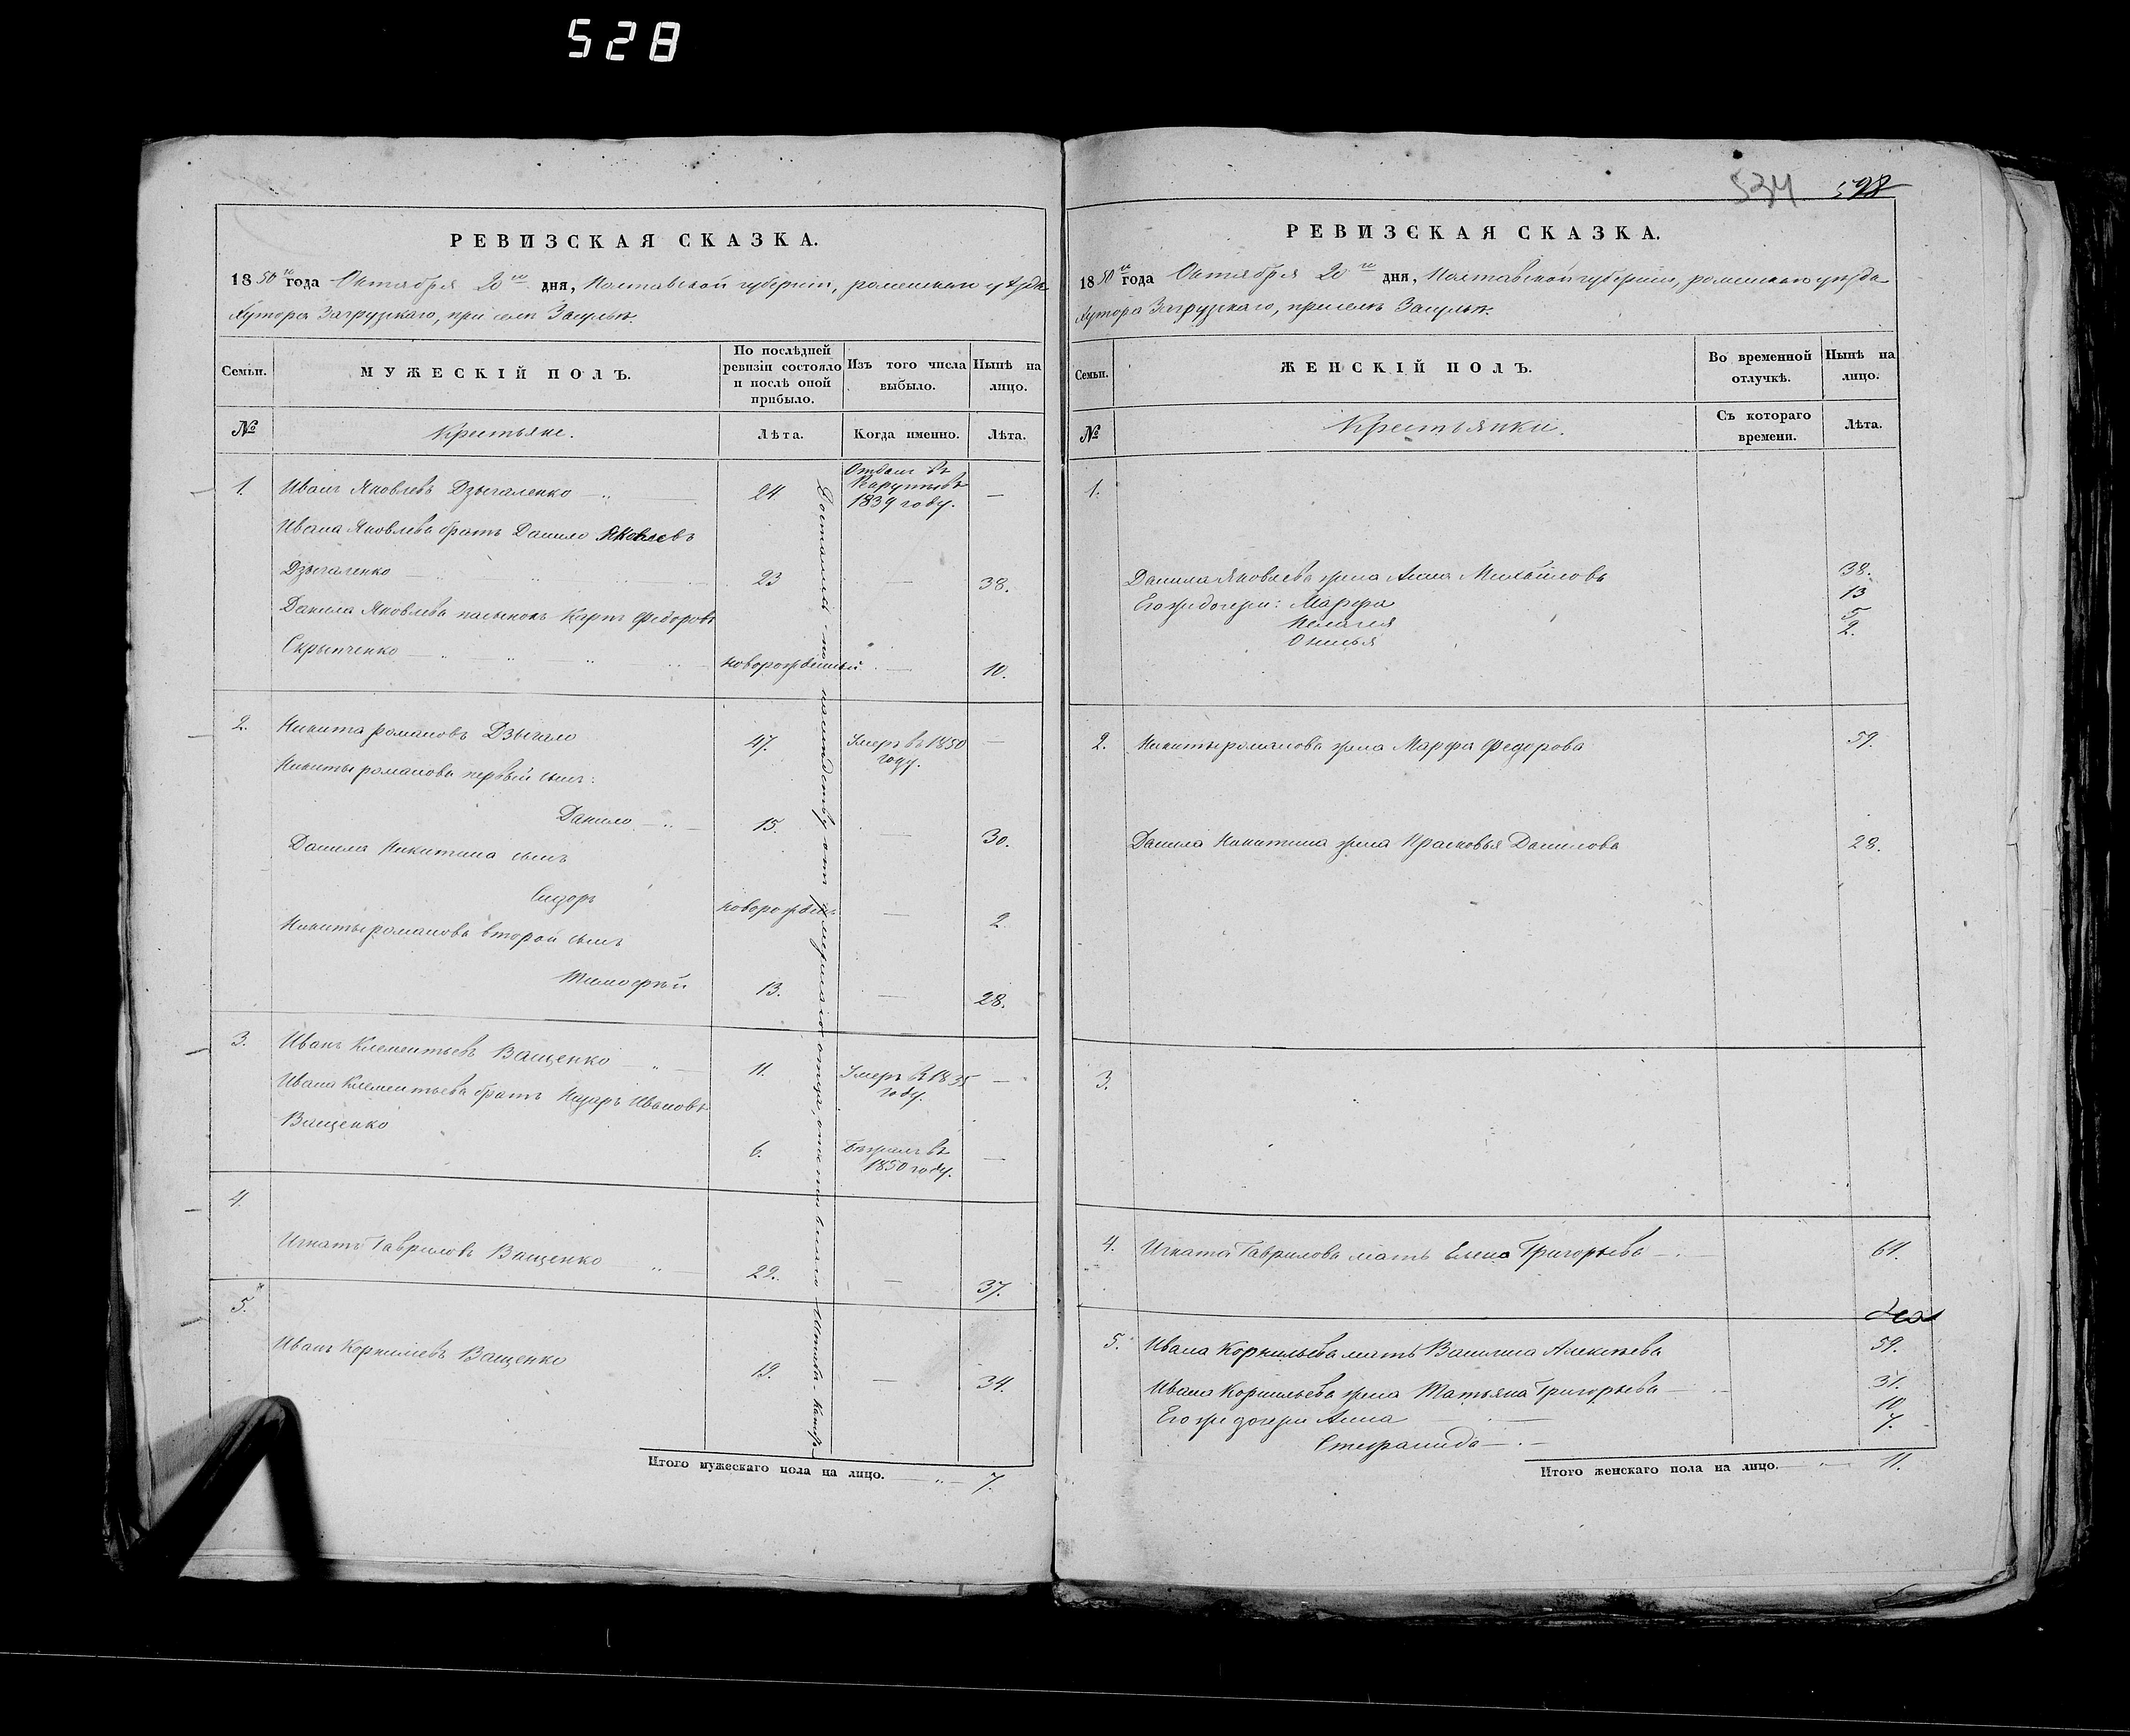 528
РЕВИЗСКАЯ СКАЗКА.
1850го года Октября 20го дня, Полтавской губернiи, роменского уѣзда
Хутора Загрузкаго, при селѣ Засульѣ.
Семьи.
МУЖЕСКIЙ ПОЛЪ.
По послѣдней ревизiи состояло и послѣ оной прибыло.
Изъ того числа выбыло.
Нынѣ на лицо.
№
Крестьяне.
Лѣта.
Когда именно.
Лѣта.
1. Иванъ Яковлевъ Дзыгаленко 24 Отданъ въ Рекруты въ 1839 году. —
Ивана Яковлева братъ Данило Яковлевъ
Дзыгаленко 23 — 38.
Данила Яковлева пасынокъ Карпъ Федоровъ
Скрыпченко новорожденный — 10.
2. Никита романовъ Дзыгало 47. Умеръ въ 1850 году. —
Никиты романова первый сынъ:
Данило 15. — 30.
Данила Никитина сынъ
Сидоръ новорожден — 2
Никиты романова второй сынъ
Тимофѣй 13. — 28.
3. Иванъ Клементьевъ Ващенко 11. Умеръ въ 1835 году. —
Ивана Клементьева братъ Назаръ Ивановъ
Ващенко 6. Бѣжалъ въ 1850 году. —
4. Игнатъ Гавриловъ Ващенко 22. — 37.
5. Иванъ Корнилiевъ Ващенко 19. — 34.
Достались по наслѣдству от умершаго отца,
Итого мужескаго пола на лицо. 7.
534 598
РЕВИЗСКАЯ СКАЗКА.
1850го года Октября 20го дня, Полтавской губернiи, роменского уѣзда
Хутора Загрузкаго, при селѣ Засульѣ.
Семьи.
ЖЕНСКIЙ ПОЛЪ.
Во временной отлучкѣ.
Нынѣ на лицо.
№
Крестьянки.
Съ котораго времени.
Лѣта.
1.
Данила Яковлева жена Анна Михайлова 38.
Его же дочери: Марфа 13
Пелагея 5
Онисья 2.
2. Никиты романова жена Марфа Федорова 59.
Данила Никитина жена Прасковья Данилова 28.
3.
4. Игната Гаврилова мать Елена Григорьева 61.
5. Ивана Корнильева мать Василина Алексѣева 59.
Ивана Корнильева жена Татьяна Григорьева 31.
Его же дочери Анна 10
Стефанида 7.
Итого женскаго пола на лицо. 11.